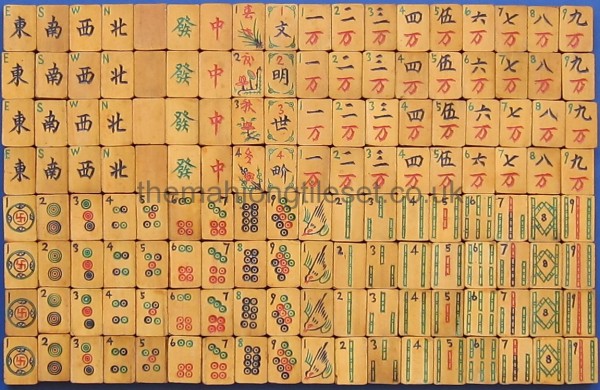 E S W N 1 1 1 2 3 4 5 6 7 8 9
東 南 西 北 發 中 春 文 一万 二万 三万 四万 伍万 六万 七万 八万 九万
E S W N 2 2 1 2 3 4 5 6 7 8 9
東 南 西 北 發 中 夏 明 一万 二万 三万 四万 伍万 六万 七万 八万 九万
E S W N 3 3 1 2 3 4 5 6 7 8 9
東 南 西 北 發 中 秋 世 一万 二万 三万 四万 伍万 六万 七万 八万 九万
E S W N 4 4 1 2 3 4 5 6 7 8 9
東 南 西 北 發 中 冬 界 一万 二万 三万 四万 伍万 六万 七万 八万 九万
themahjongtileset.co.uk
1 2 3 4 5 6 7 8 9 1 2 3 4 5 6 7 8 9
1 2 3 4 5 6 7 8 9 1 2 3 4 5 6 7 8 9
1 2 3 4 5 6 7 8 9 1 2 3 4 5 6 7 8 9
1 2 3 4 5 6 7 8 9 1 2 3 4 5 6 7 8 9